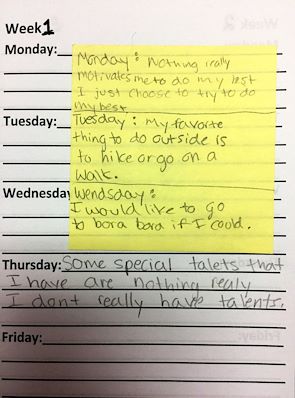 Week 1
Monday:
Monday: Nothing really
motivates me to do my best
I just choose to try to do
my best
Tuesday:
Tuesday: my favorite
thing to do outside is
to hike or go on a
walk.
Wednesday
Wendsday:
I would like to go
to bora bora if I could.
Thursday: Some special talets that
I have are nothing realy
I dont really have talents.
Friday: